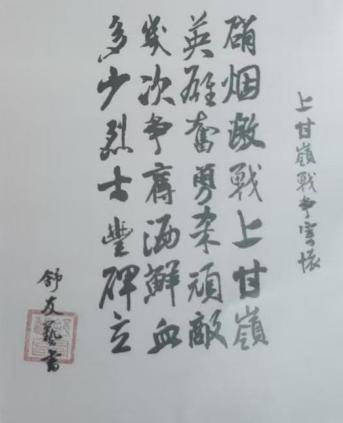 上甘嶺戰爭寄懷
硝烟激戰上甘嶺
英雄奮勇杀頑敵
幾次争奪洒鮮血
多少烈士豐碑立
舒友藝書